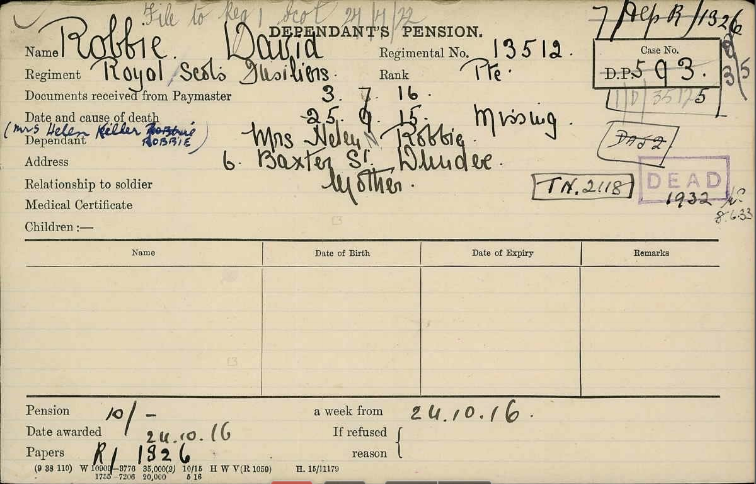 File to Reg 1 Scot 24/7/22
7/Alp R/1326
DEPENDANT'S PENSION.
Name Robbie David Regimental No. 13512.
Case No.
D.P. 593.
Regiment Royal Scots Fusiliers. Rank Pte.
Documents received from Paymaster 3 7 16.
Date and cause of death 25 9 15. Missing.
(Mrs Helen Keller ROBBIE)
Dependant Mrs Helen Robbie
Address 6. Baxter St. Dundee.
Relationship to soldier Mother.
TN. 2118
DEAD
1932
8.6.33
Medical Certificate
Children :—
Name Date of Birth Date of Expiry Remarks
Pension 10/- a week from 24.10.16.
Date awarded 24.10.16 If refused
Papers R/ 1326 reason
(9 38 110) W 10909—9776 35,000(2) 10/15 H W V(R 1050) H. 15/11179
1755—7206 20,000 5 16